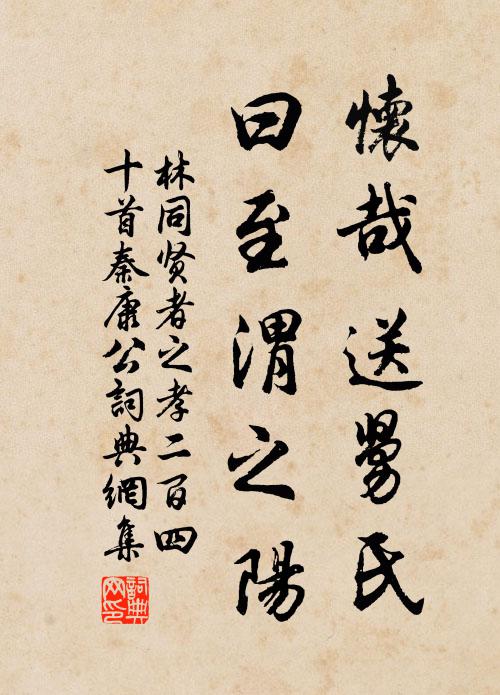 懷哉送舅氏
曰至渭之陽
林同贤者之孝二百四
十首秦康公詞典網集
詞典網印